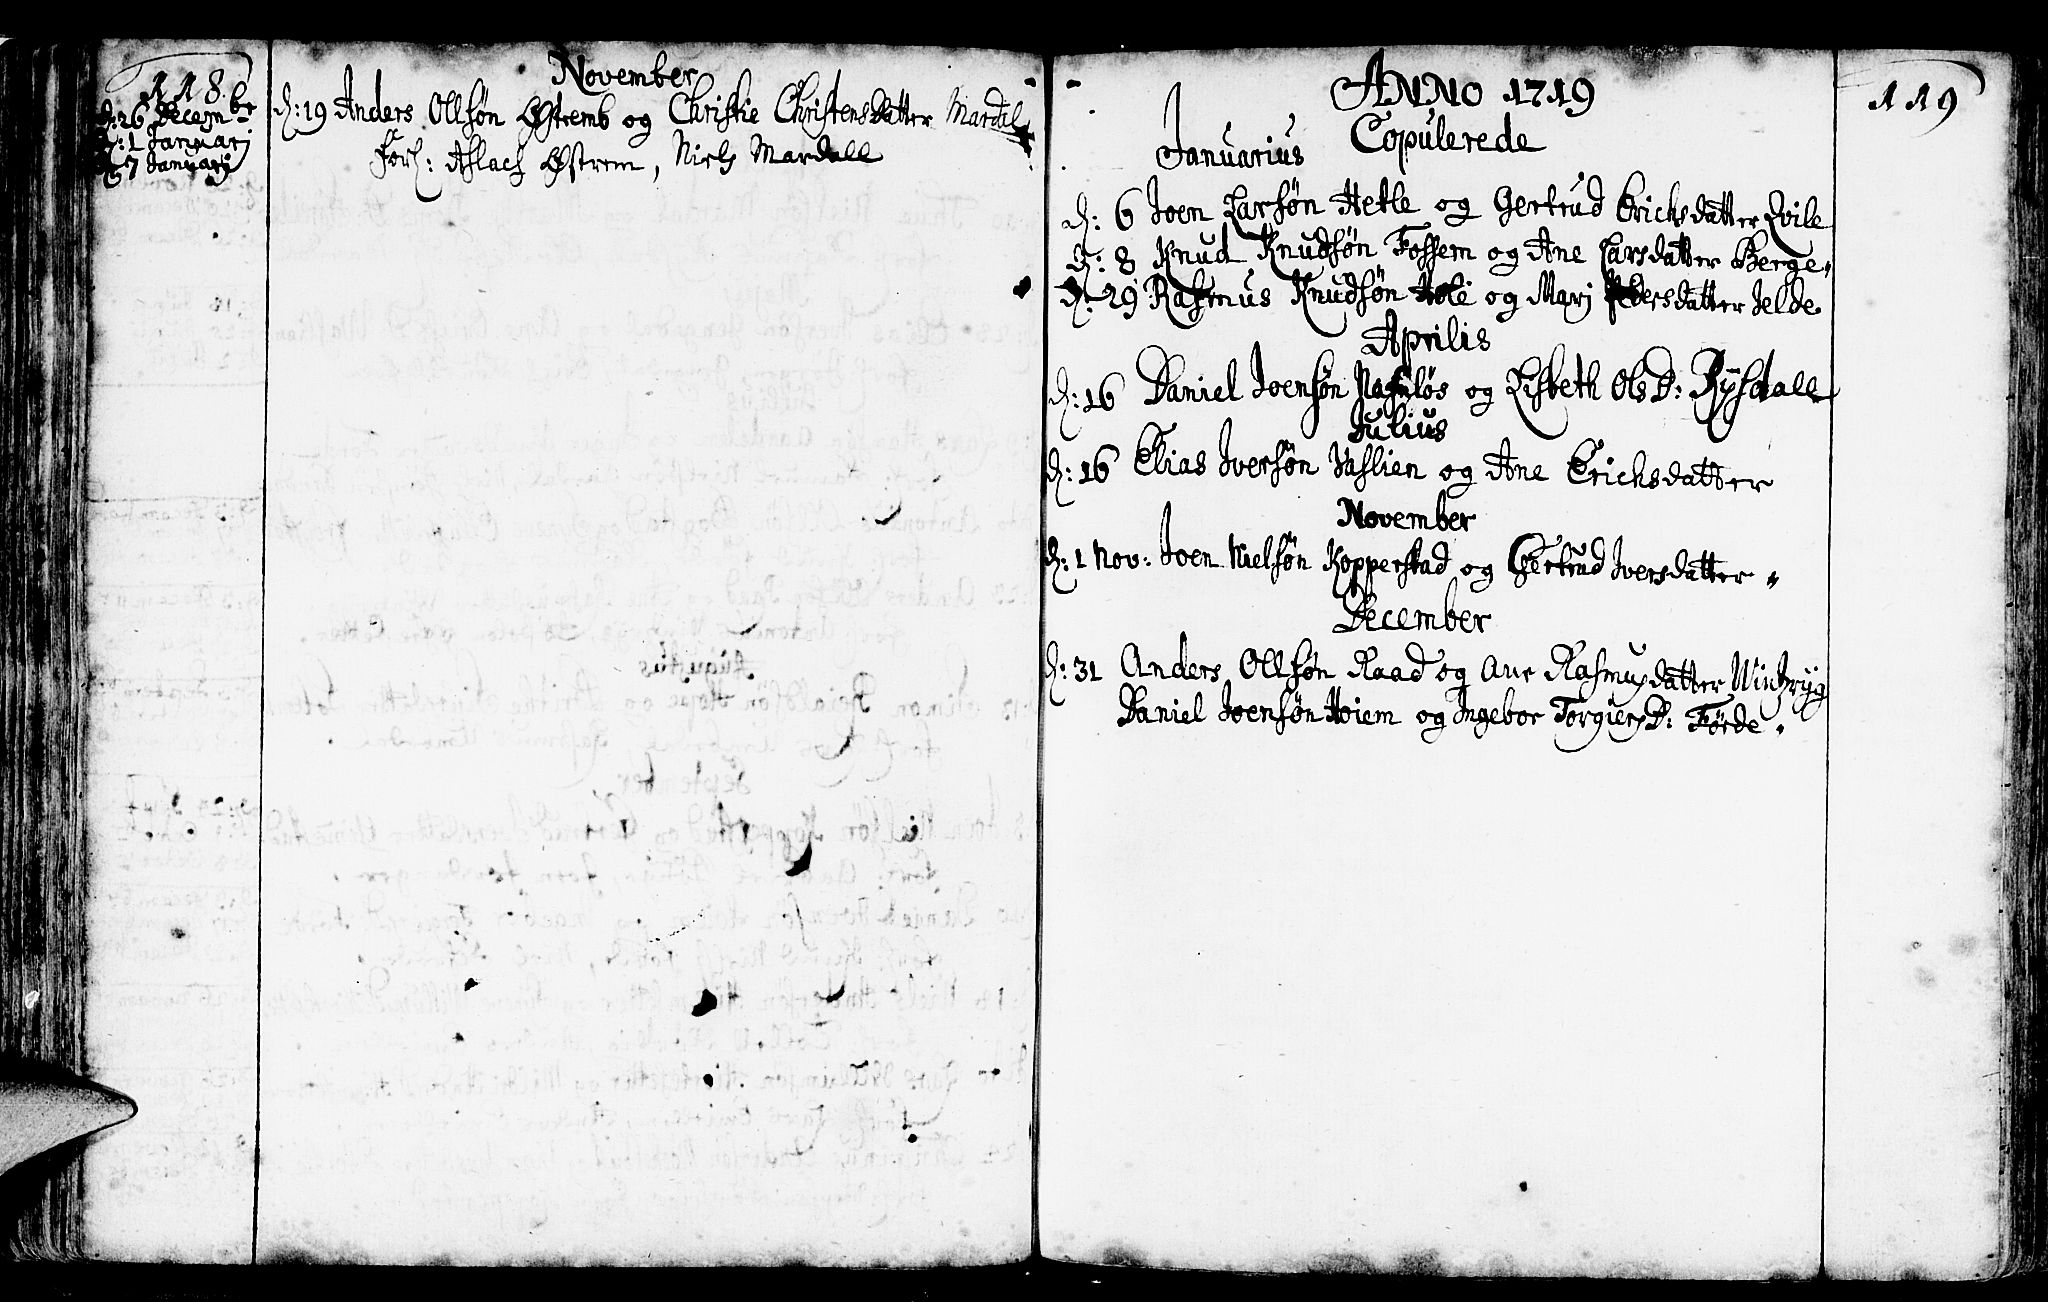 118.
d: 26 Decembr
d: 1 Januarj
d: 7 Januarj
November
d: 19 Anders Ollsøn Østremb og Christie Christensdatter Mardal
Forl: Aslach Østrem, Niels Mardall
119
ANNO 1719
Copulerede
Januarius
d: 6 Joen Larsøn Hetle og Gertrud Erichsdatter Qvile
d: 8 Knud Knudsøn Fossem og Ane Larsdatter Berge
d: 29 Rasmus Knudsøn Hole og Marj Pedersdatter Jelde
Aprilis
d: 16 Daniel Joensøn og Lisbeth Ols D: Rysdall
Julius
d: 16 Elias Iversøn Vaslien og Ane Erichsdatter
November
d: 1 Nov: Joen Nielsøn Kopperstad og Gertrud Iversdatter
December
d: 31 Anders Ollsøn Raad og Ane Rasmusdatter
Daniel Joensøn Hoiem og Ingebor Torgiers D: Førde.